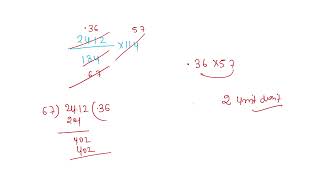 .36 57
2412
134 ×114
67
.36 ×57
67) 2412 (.36
201
402
402
2 unit digit